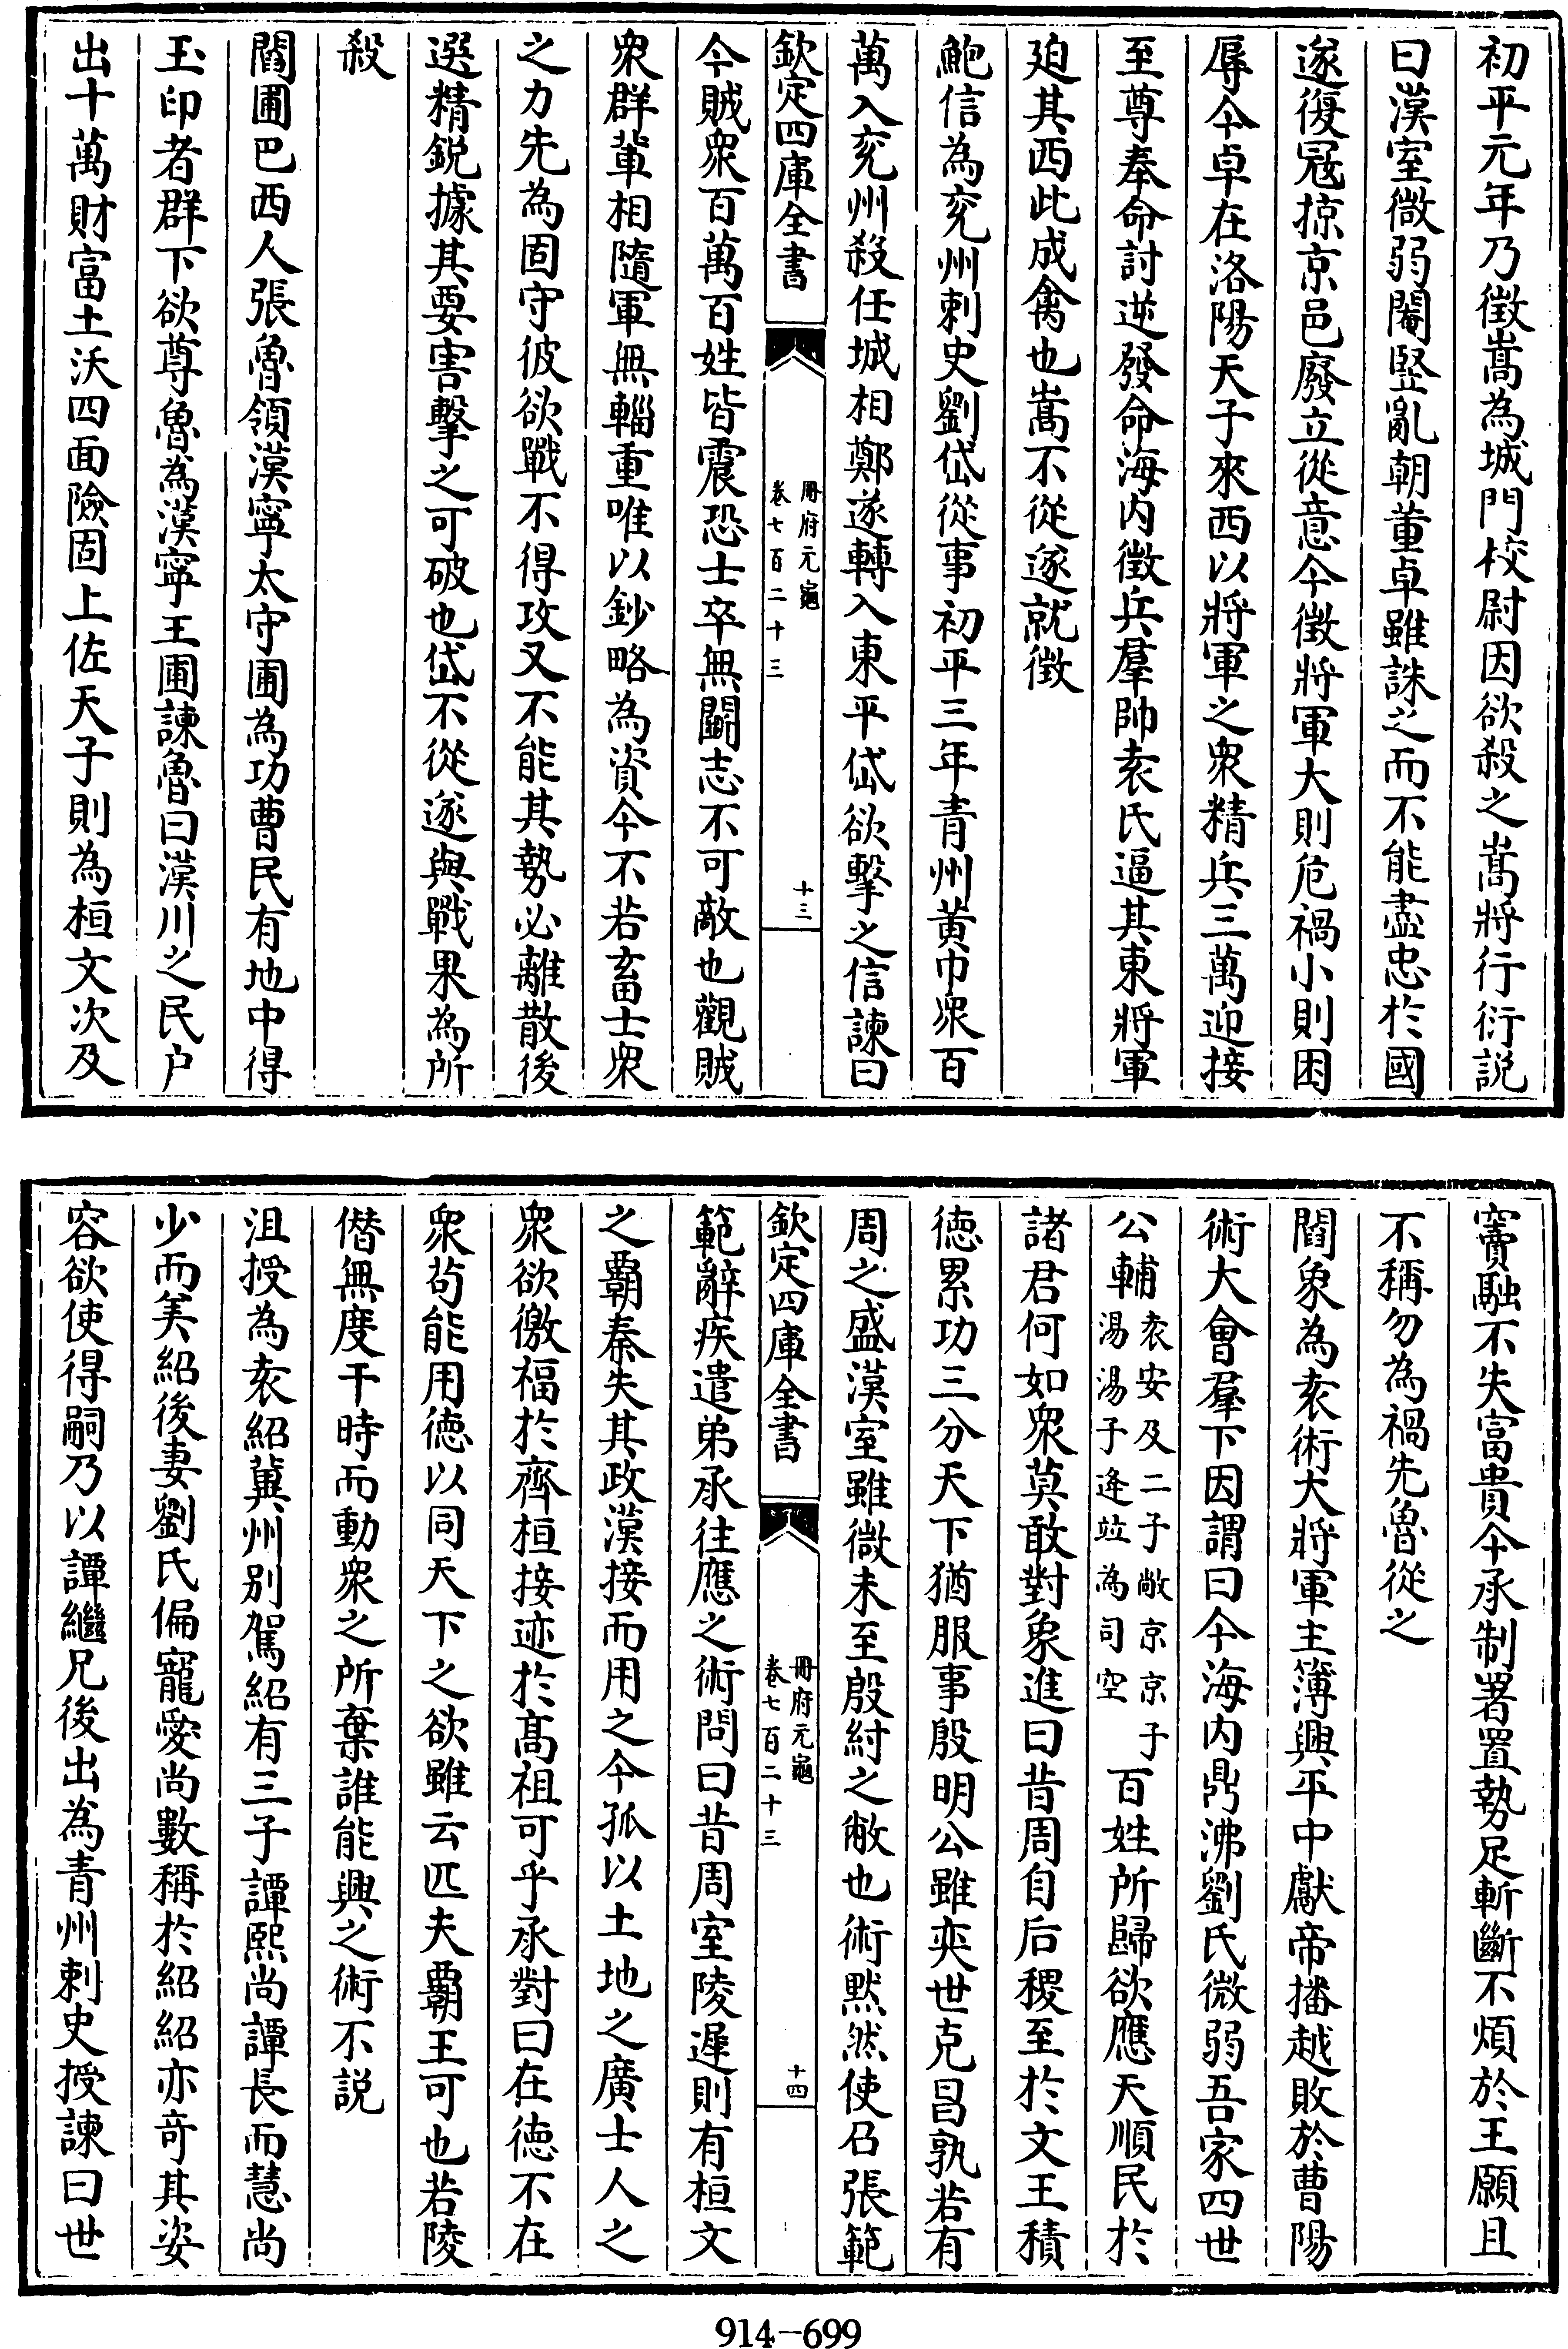 初平元年乃徵嵩為城門校尉因欲殺之嵩將行衍說
曰漢室微弱閹豎亂朝董卓雖誅之而不能盡忠於國
遂復冦掠京邑廢立從意今徵將軍大則危禍小則困
辱今卓在洛陽天子來西以將軍之衆精兵三萬迎接
至尊奉命討逆發命海内徵兵羣帥袁氏逼其東將軍
廹其西此成禽也嵩不從遂就徵
鮑信為兖州刺史劉岱從事初平三年青州黄巾衆百
萬入兖州殺任城相鄭遂轉入東平岱欲擊之信諫曰
欽定四庫全書
冊府元龜
卷七百二十三
十三
今賊衆百萬百姓皆震恐士卒無鬭志不可敵也觀賊
衆群輩相隨軍無輜重唯以鈔略為資今不若畜士衆
之力先為固守彼欲戰不得攻又不能其勢必離散後
選精鋭據其要害擊之可破也岱不從遂與戰果為所
殺
閻圃巴西人張魯領漢寧太守圃為功曹民有地中得
玉印者群下欲尊魯為漢寧王圃諫魯曰漢川之民户
出十萬財富土沃四面險固上佐天子則為桓文次及
竇融不失富貴今承制署置勢足斬斷不煩於王願且
不稱勿為禍先魯從之
閻象為袁術大將軍主簿興平中獻帝播越敗於曹陽
術大會羣下因謂曰今海内鼎沸劉氏微弱吾家四世
公輔袁安及二子敞京京子湯湯子逄竝為司空百姓所歸欲應天順民於
諸君何如衆莫敢對象進曰昔周自后稷至於文王積
徳累功三分天下猶服事殷明公雖奕世克昌孰若有
周之盛漢室雖微未至殷紂之敝也術默然使召張範
欽定四庫全書
冊府元龜
卷七百二十三
十四
範辭疾遣弟承往應之術問曰昔周室陵遲則有桓文
之霸秦失其政漢接而用之今孤以土地之廣士人之
衆欲徼福於齊桓接迹於髙祖可乎承對曰在徳不在
衆茍能用徳以同天下之欲雖云匹夫霸王可也若陵
僭無度干時而動衆之所棄誰能興之術不説
沮授為袁紹冀州别駕紹有三子譚熙尚譚長而慧尚
少而美紹後妻劉氏偏寵愛尚數稱於紹紹亦竒其姿
容欲使得嗣乃以譚繼兄後出為青州刺史授諫曰世
914-699